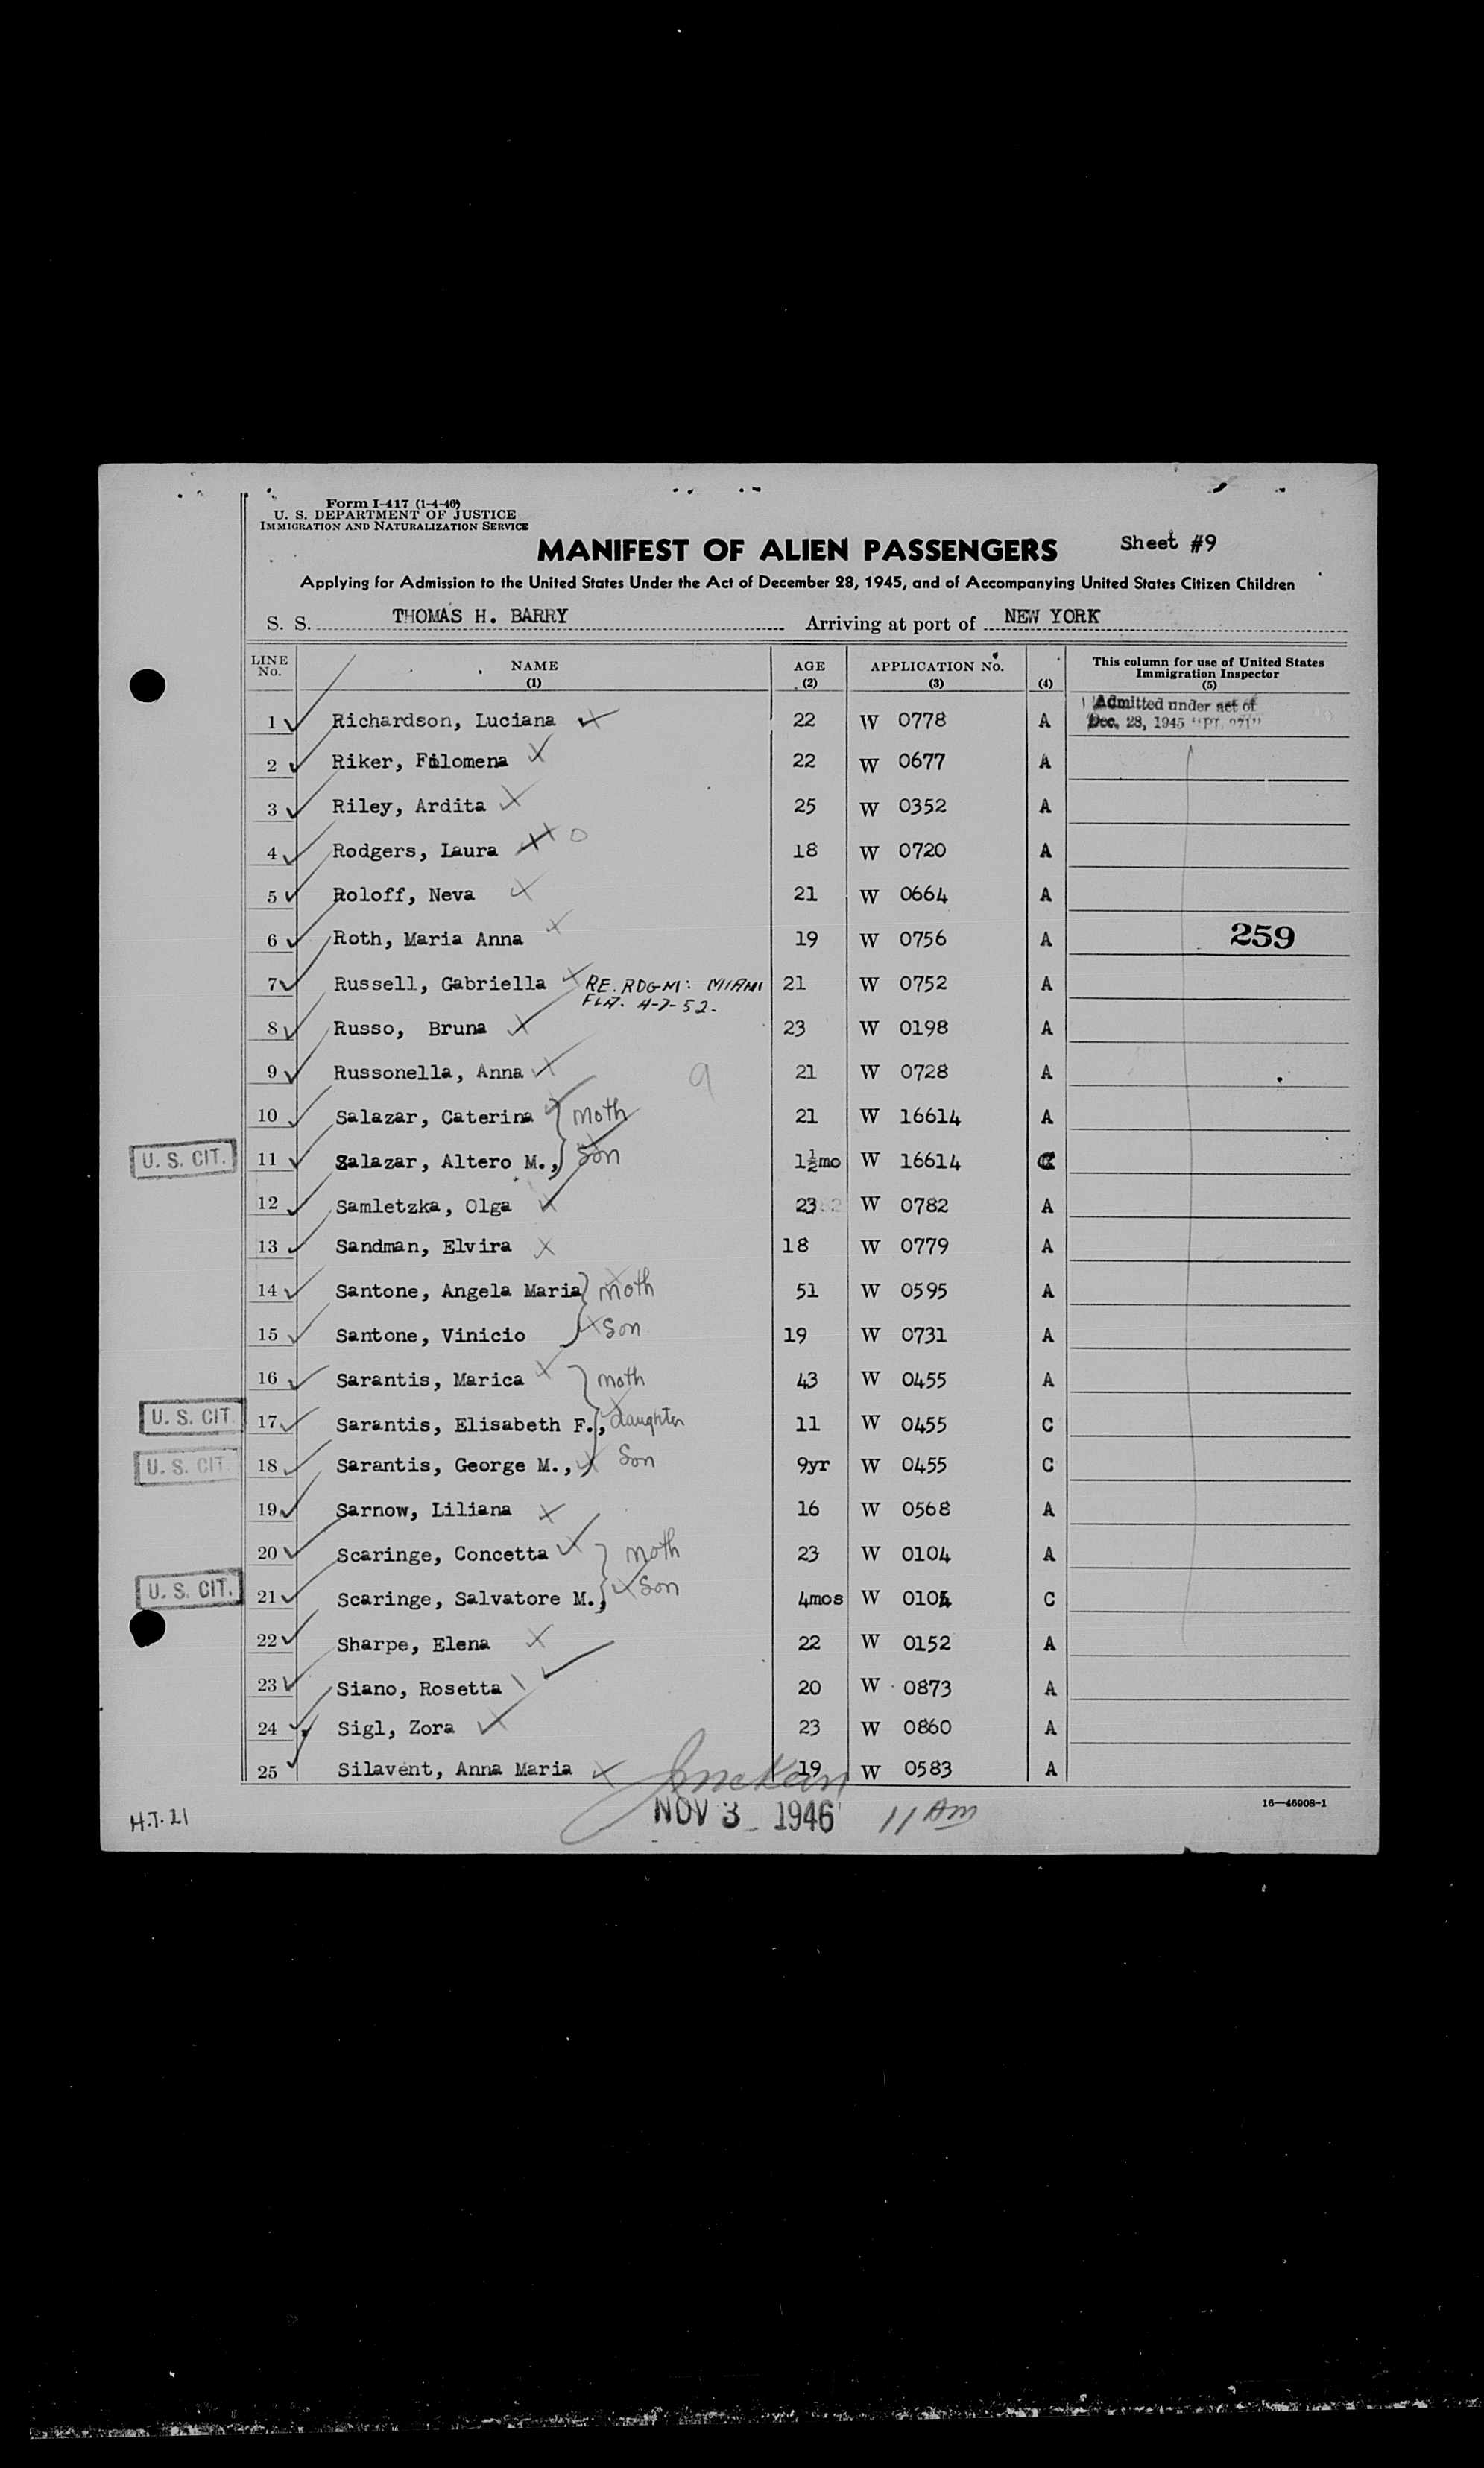 Form I-417 (1-4-46)
U. S. DEPARTMENT OF JUSTICE
IMMIGRATION AND NATURALIZATION SERVICE
MANIFEST OF ALIEN PASSENGERS Sheet #9
Applying for Admission to the United States Under the Act of December 28, 1945, and of Accompanying United States Citizen Children
S. S. THOMAS H. BARRY Arriving at port of NEW YORK
LINE No. NAME (1) AGE (2) APPLICATION No. (3) (4) This column for use of United States Immigration Inspector (5)
Admitted under act of
1 Richardson, Luciana 22 W 0778 A Dec. 28, 1945 "PL 271"
2 Riker, Filomena 22 W 0677 A
3 Riley, Ardita 25 W 0352 A
4 Rodgers, Laura 18 W 0720 A
5 Roloff, Neva 21 W 0664 A
6 Roth, Maria Anna 19 W 0756 A 259
7 Russell, Gabriella RE. RDGM: MIAMI 21 W 0752 A
FLA. 4-7-52.
8 Russo, Bruna 23 W 0198 A
9 Russonella, Anna 9 21 W 0728 A
10 Salazar, Caterina Moth 21 W 16614 A
U. S. CIT. 11 Salazar, Altero M., Son 1½mo W 16614 C
12 Samletzka, Olga 23 W 0782 A
13 Sandman, Elvira 18 W 0779 A
14 Santone, Angela Maria Moth 51 W 0595 A
15 Santone, Vinicio Son 19 W 0731 A
16 Sarantis, Marica Moth 43 W 0455 A
U. S. CIT. 17 Sarantis, Elisabeth F., daughter 11 W 0455 C
U. S. CIT 18 Sarantis, George M., Son 9yr W 0455 C
19 Sarnow, Liliana 16 W 0568 A
20 Scaringe, Concetta Moth 23 W 0104 A
U. S. CIT. 21 Scaringe, Salvatore M., Son 4mos W 0104 C
22 Sharpe, Elena 22 W 0152 A
23 Siano, Rosetta 20 W 0873 A
24 Sigl, Zora 23 W 0860 A
25 Silavent, Anna Maria 19 W 0583 A
16—46908-1
H.J. 21 NOV 3 1946 11 AM